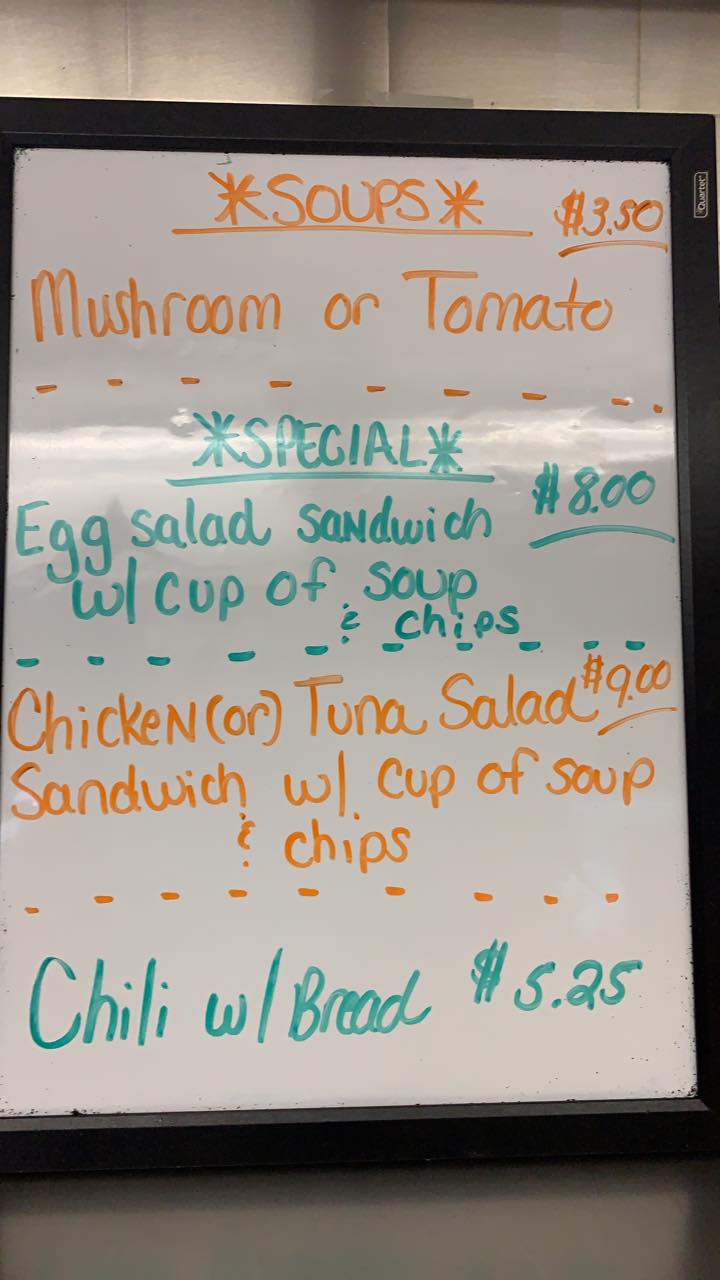 *SOUPS* $3.50
Mushroom or Tomato
*SPECIAL*
Egg salad sandwich $8.00
w/ cup of soup
& chips
Chicken (or) Tuna Salad $9.00
Sandwich w/ cup of soup
& chips
Chili w/ Bread $5.25
Quartet